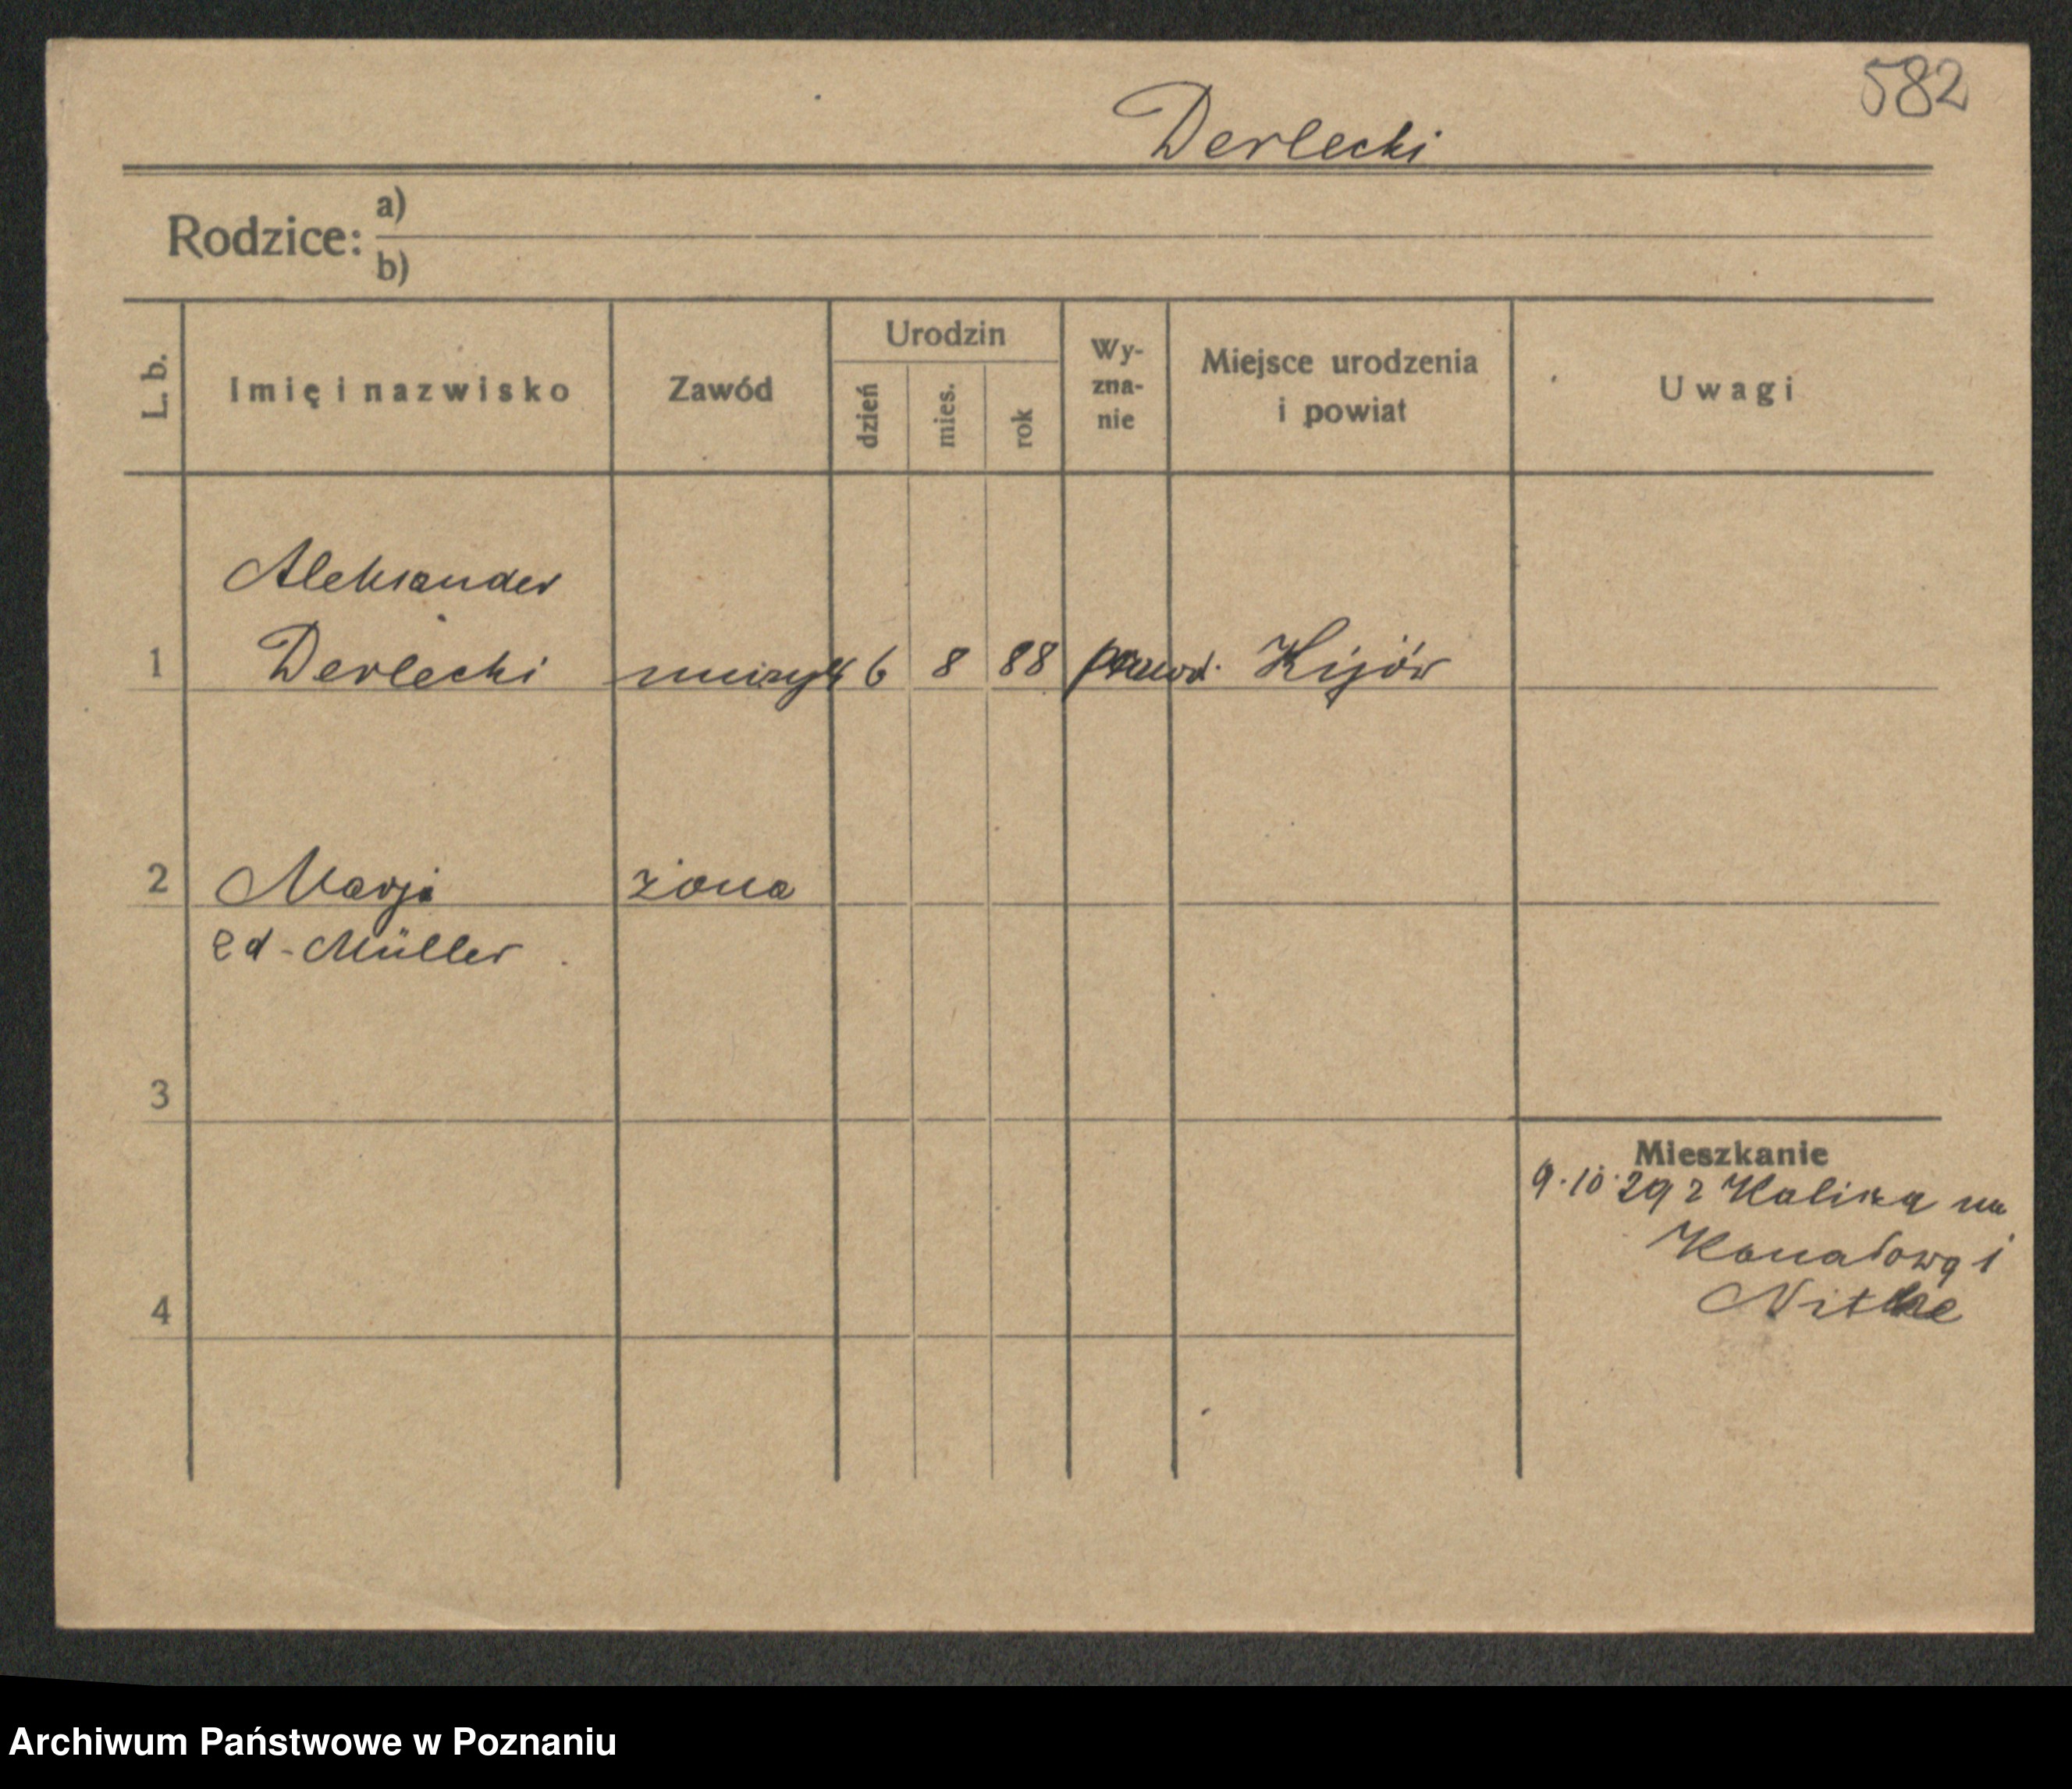 582
Derlecki
Rodzice: a)
b)
L. b. Imię i nazwisko Zawód Urodzin dzień mies. rok Wy-zna-nie Miejsce urodzenia i powiat Uwagi
Aleksander
1 Derlecki muzyk 6 8 88 prawosł. Kijów
2 Marja żona
zd - Müller
3
Mieszkanie
9.10.29 z Kalisza na
Kanałową 1
Nitke
4
Archiwum Państwowe w Poznaniu